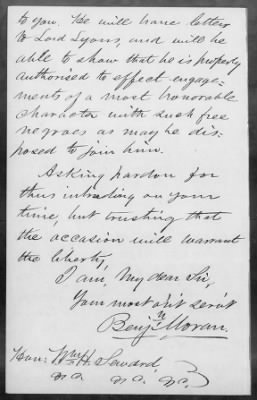 to you. He will have letters
to Lord Lyons, and will be
able to show that he is properly
authorised to effect engage=
ments of a most honorable
character with such free
negroes as may be dis=
posed to join him.
Asking pardon for
thus intruding on your
time, but trusting that
the occasion will warrant
the liberty,
I am, My dear Sir,
Your most ob't serv't
Benjn Moran.
Hon: Wm H. Seward,
&c. &c. &c.